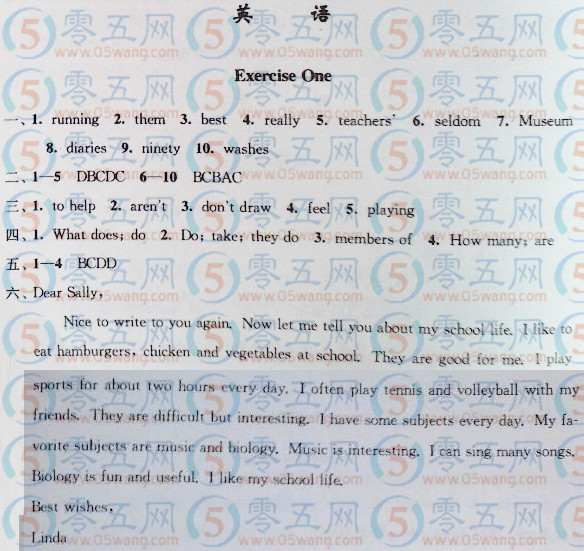 英 语
Exercise One
一、1. running 2. them 3. best 4. really 5. teachers' 6. seldom 7. Museum
8. diaries 9. ninety 10. washes
二、1—5 DBCDC 6—10 BCBAC
三、1. to help 2. aren't 3. don't draw 4. feel 5. playing
四、1. What does; do 2. Do; take; they do 3. members of 4. How many; are
五、1—4 BCDD
六、Dear Sally,
Nice to write to you again. Now let me tell you about my school life. I like to
eat hamburgers, chicken and vegetables at school. They are good for me. I play
sports for about two hours every day. I often play tennis and volleyball with my
friends. They are difficult but interesting. I have some subjects every day. My fa-
vorite subjects are music and biology. Music is interesting. I can sing many songs.
Biology is fun and useful. I like my school life.
Best wishes,
Linda
零五网
www.05wang.com